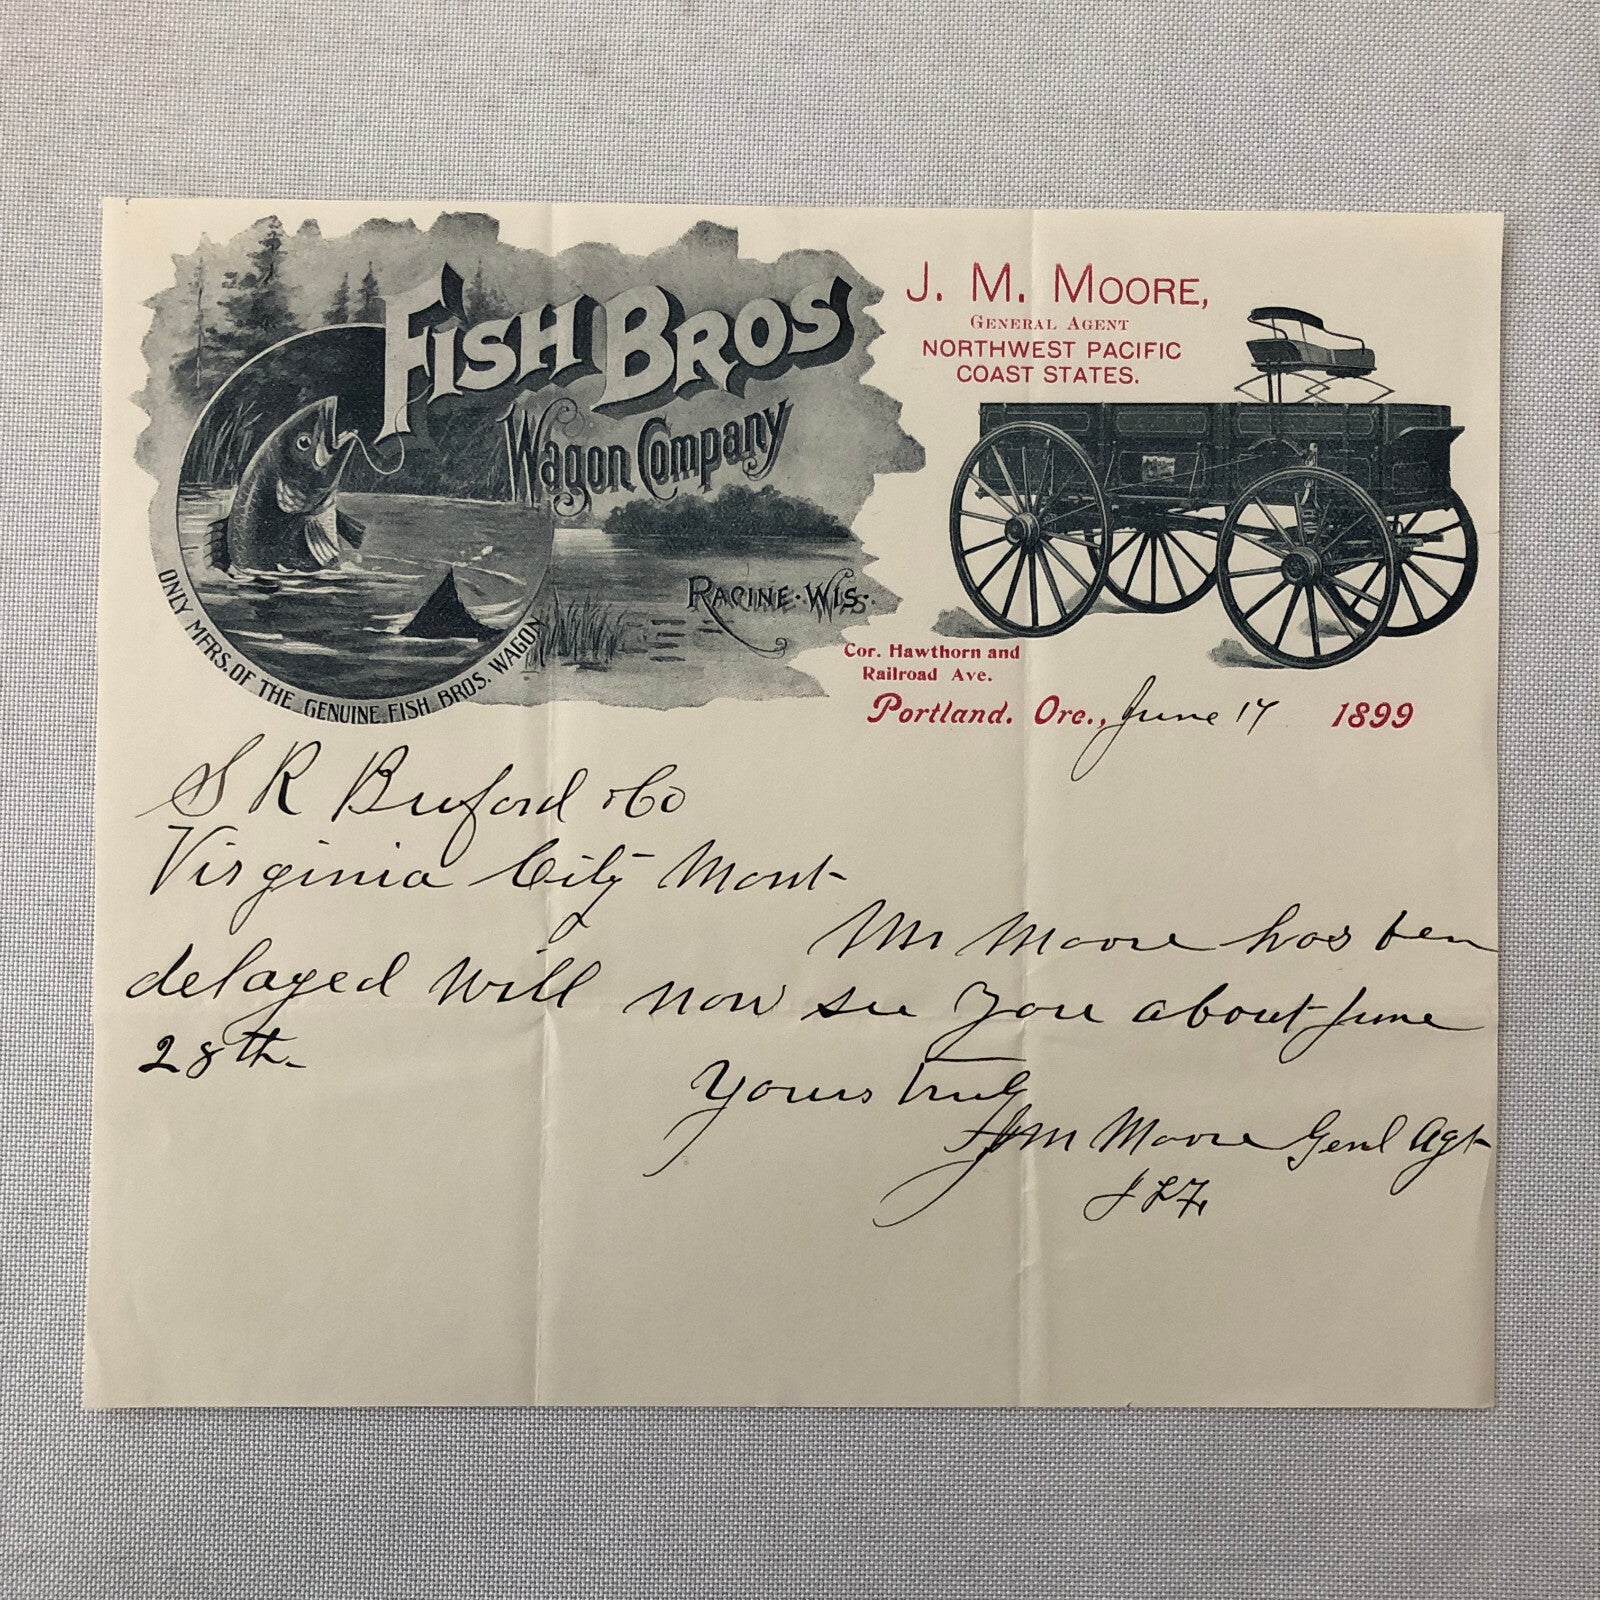 FISH BROS
Wagon Company
RACINE · WIS.
ONLY MFRS. OF THE GENUINE FISH BROS. WAGON
J. M. MOORE,
GENERAL AGENT
NORTHWEST PACIFIC
COAST STATES.
Cor. Hawthorn and
Railroad Ave.
Portland. Ore., June 17 1899
S R Buford & Co
Virginia City Mont
Mr Moore has ben
delayed Will now see you about June
28th
Yours truly
J M Moore Genl Agt